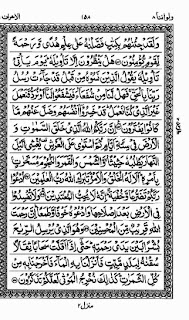 ولواننا ٨ ١٥٨ الاعراف ٧
وَلَقَدْ جِئْنٰهُمْ بِكِتٰبٍ فَصَّلْنٰهُ عَلٰى عِلْمٍ هُدًى وَّرَحْمَةً
لِّقَوْمٍ يُّؤْمِنُوْنَ ۝ هَلْ يَنْظُرُوْنَ اِلَّا تَاْوِيْلَهٗ يَوْمَ يَاْتِيْ
تَاْوِيْلُهٗ يَقُوْلُ الَّذِيْنَ نَسُوْهُ مِنْ قَبْلُ قَدْ جَآءَتْ رُسُلُ
رَبِّنَا بِالْحَقِّ فَهَلْ لَّنَا مِنْ شُفَعَآءَ فَيَشْفَعُوْا لَنَآ اَوْ نُرَدُّ
فَنَعْمَلَ غَيْرَ الَّذِيْ كُنَّا نَعْمَلُ قَدْ خَسِرُوْٓا اَنْفُسَهُمْ وَضَلَّ عَنْهُمْ مَّا
كَانُوْا يَفْتَرُوْنَ ۝ اِنَّ رَبَّكُمُ اللّٰهُ الَّذِيْ خَلَقَ السَّمٰوٰتِ وَ
الْاَرْضَ فِيْ سِتَّةِ اَيَّامٍ ثُمَّ اسْتَوٰى عَلَى الْعَرْشِ يُغْشِى الَّيْلَ
النَّهَارَ يَطْلُبُهٗ حَثِيْثًا وَّالشَّمْسَ وَالْقَمَرَ وَالنُّجُوْمَ مُسَخَّرٰتٍ
بِاَمْرِهٖ اَلَا لَهُ الْخَلْقُ وَالْاَمْرُ تَبٰرَكَ اللّٰهُ رَبُّ الْعٰلَمِيْنَ ۝ اُدْعُوْا
رَبَّكُمْ تَضَرُّعًا وَّخُفْيَةً اِنَّهٗ لَا يُحِبُّ الْمُعْتَدِيْنَ ۝ وَلَا تُفْسِدُوْا
فِي الْاَرْضِ بَعْدَ اِصْلَاحِهَا وَادْعُوْهُ خَوْفًا وَّطَمَعًا اِنَّ رَحْمَتَ
اللّٰهِ قَرِيْبٌ مِّنَ الْمُحْسِنِيْنَ ۝ وَهُوَ الَّذِيْ يُرْسِلُ الرِّيٰحَ
بُشْرًۢا بَيْنَ يَدَيْ رَحْمَتِهٖ حَتّٰٓى اِذَآ اَقَلَّتْ سَحَابًا ثِقَالًا
سُقْنٰهُ لِبَلَدٍ مَّيِّتٍ فَاَنْزَلْنَا بِهِ الْمَآءَ فَاَخْرَجْنَا بِهٖ مِنْ
كُلِّ الثَّمَرٰتِ كَذٰلِكَ نُخْرِجُ الْمَوْتٰى لَعَلَّكُمْ تَذَكَّرُوْنَ ۝
منزل ٢